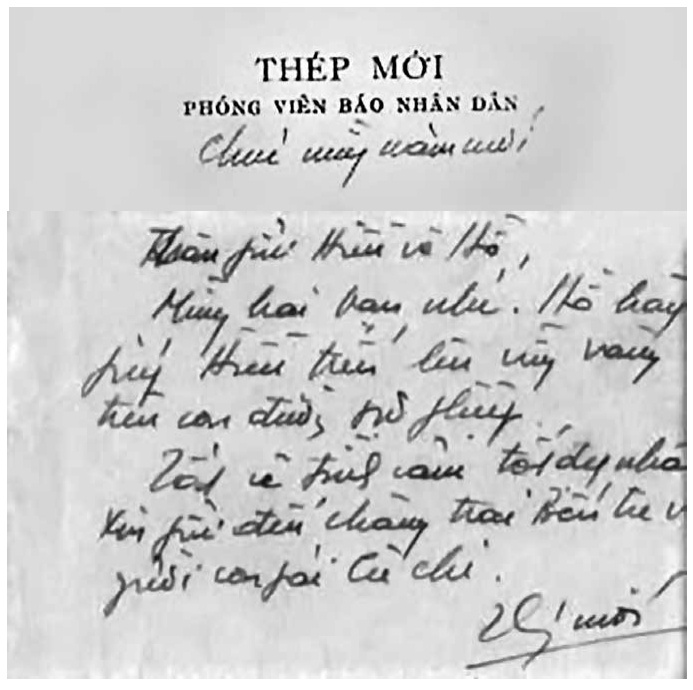 THÉP MỚI
PHÓNG VIÊN BÁO NHÂN DÂN
Chúc mừng năm mới
Thân gửi Hiền và Hồ,
Mừng hai bạn nhé. Hồ hãy
giúp Hiền tiến lên vững vàng
trên con đường sự nghiệp.
Tất cả tình cảm tốt đẹp nhất
Xin gửi đến chàng trai Bến Tre và
người con gái Củ Chi.
Thép mới